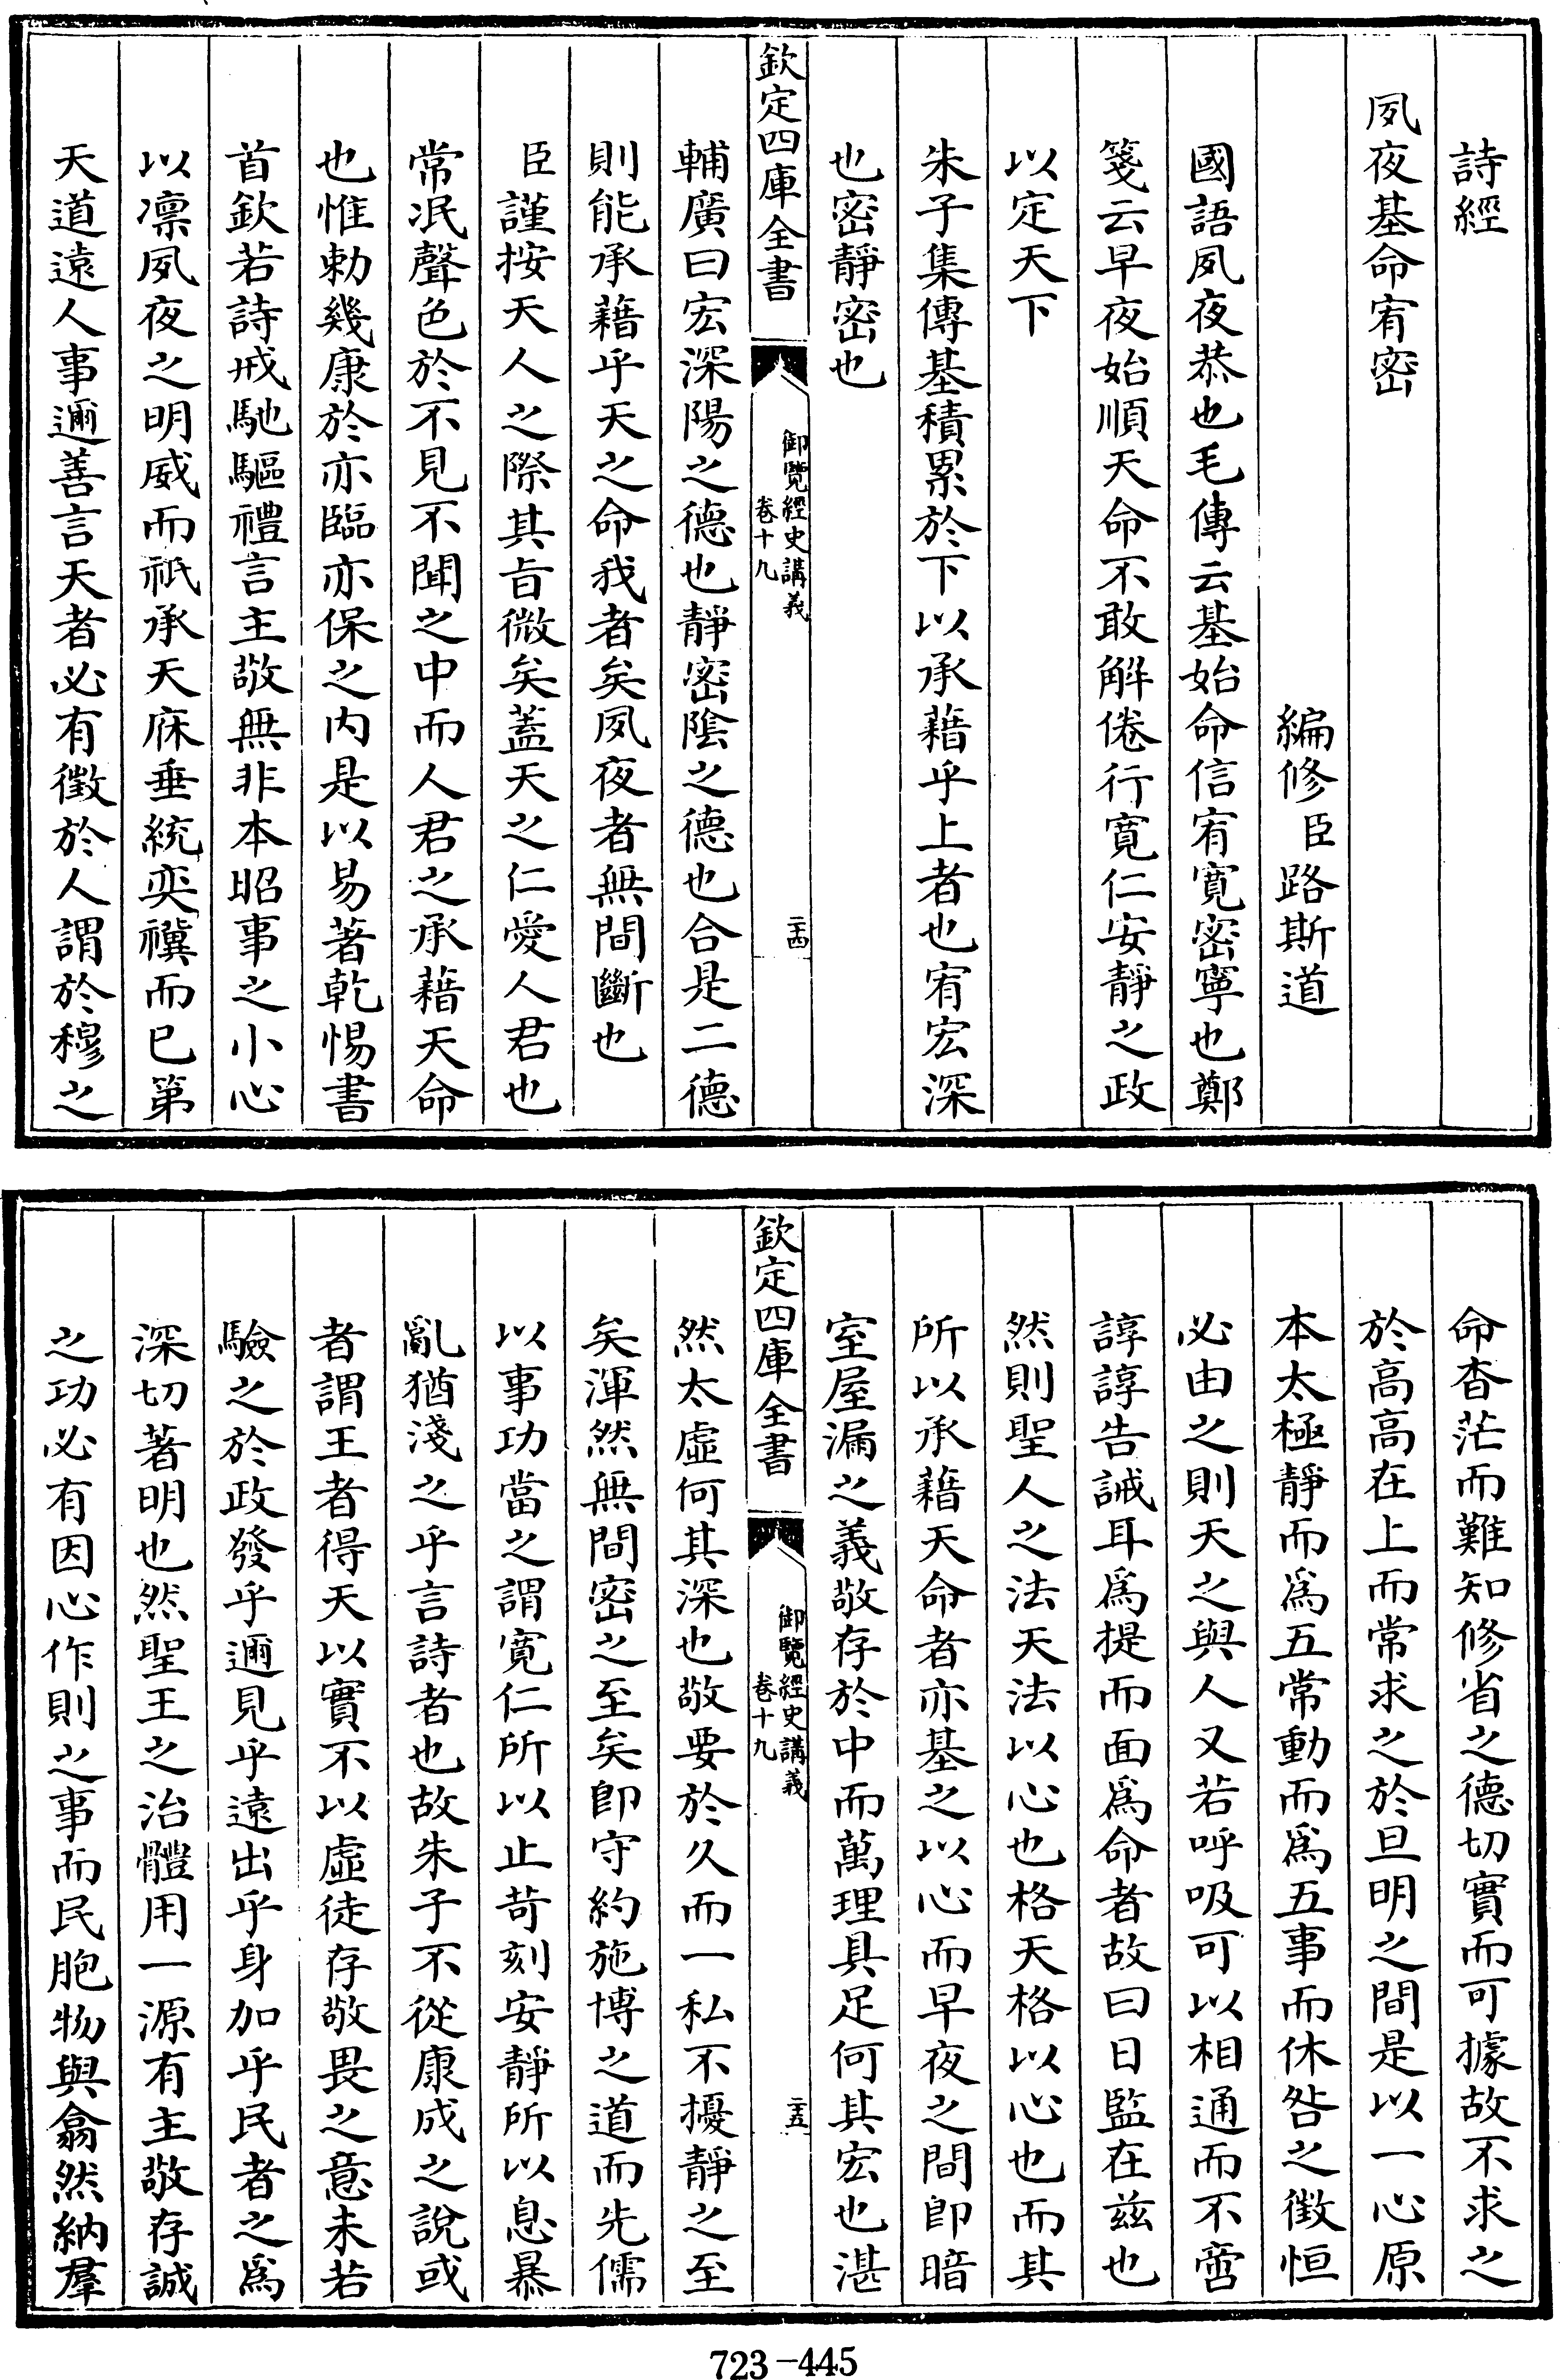 詩經
夙夜基命宥密
編修臣路斯道
國語夙夜恭也毛傳云基始命信宥寛密寧也鄭
箋云早夜始順天命不敢解倦行寛仁安靜之政
以定天下
朱子集傳基積累於下以承藉乎上者也宥宏深
也密靜密也
欽定四庫全書
御覽經史講義
卷十九
二十四
輔廣曰宏深陽之德也靜密陰之德也合是二德
則能承藉乎天之命我者矣夙夜者無間斷也
臣謹按天人之際其旨微矣蓋天之仁愛人君也
常泯聲色於不見不聞之中而人君之承藉天命
也惟勅幾康於亦臨亦保之内是以易著乾惕書
首欽若詩戒馳驅禮言主敬無非本昭事之小心
以凛夙夜之明威而祇承天庥垂統奕禩而已第
天道遠人事邇善言天者必有徵於人謂於穆之
命杳茫而難知修省之德切實而可據故不求之
於高高在上而常求之於旦明之間是以一心原
本太極靜而爲五常動而爲五事而休咎之徵恒
必由之則天之與人又若呼吸可以相通而不啻
諄諄告誡耳爲提而面爲命者故曰日監在兹也
然則聖人之法天法以心也格天格以心也而其
所以承藉天命者亦基之以心而早夜之間卽暗
室屋漏之義敬存於中而萬理具足何其宏也湛
欽定四庫全書
御覽經史講義
卷十九
二十五
然太虛何其深也敬要於久而一私不擾靜之至
矣渾然無間密之至矣卽守約施博之道而先儒
以事功當之謂寛仁所以止苛刻安靜所以息暴
亂猶淺之乎言詩者也故朱子不從康成之說或
者謂王者得天以實不以虛徒存敬畏之意未若
驗之於政發乎邇見乎遠出乎身加乎民者之爲
深切著明也然聖王之治體用一源有主敬存誠
之功必有因心作則之事而民胞物與翕然納羣
723-445